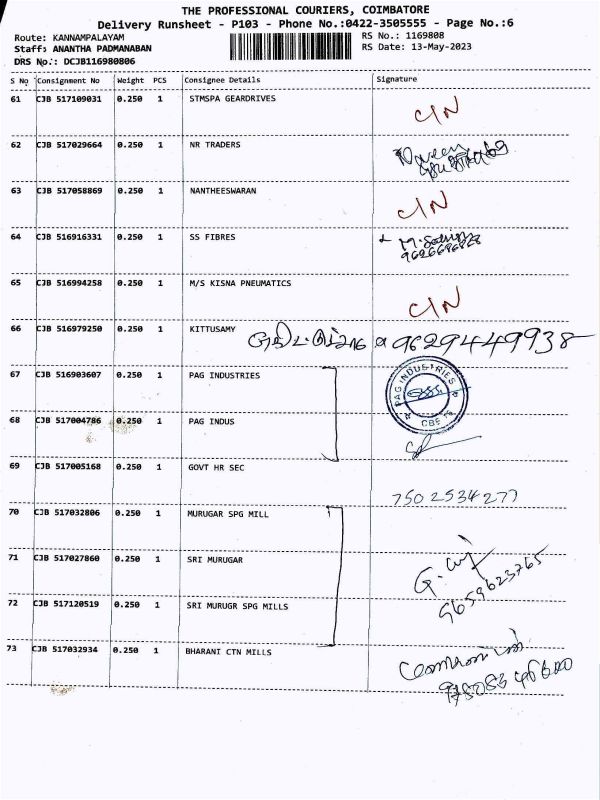 THE PROFESSIONAL COURIERS, COIMBATORE
Delivery Runsheet - P103 - Phone No.:0422-3505555 - Page No.:6
Route: KANNAMPALAYAM RS No.: 1169808
Staff: ANANTHA PADMANABAN RS Date: 13-May-2023
DRS No.: DCJB116980806
S No Consignment No Weight PCS Consignee Details Signature
61 CJB 517109031 0.250 1 STMSPA GEARDRIVES C/N
62 CJB 517029664 0.250 1 NR TRADERS Naveen
63 CJB 517058869 0.250 1 NANTHEESWARAN C/N
64 CJB 516916331 0.250 1 SS FIBRES
65 CJB 516994258 0.250 1 M/S KISNA PNEUMATICS C/N
66 CJB 516979250 0.250 1 KITTUSAMY 9629449938
67 CJB 516903607 0.250 1 PAG INDUSTRIES PAG INDUSTRIES
68 CJB 517004786 0.250 1 PAG INDUS CBE
69 CJB 517005168 0.250 1 GOVT HR SEC 7502534277
70 CJB 517032806 0.250 1 MURUGAR SPG MILL
71 CJB 517027860 0.250 1 SRI MURUGAR 9659623765
72 CJB 517120519 0.250 1 SRI MURUGR SPG MILLS
73 CJB 517032934 0.250 1 BHARANI CTN MILLS